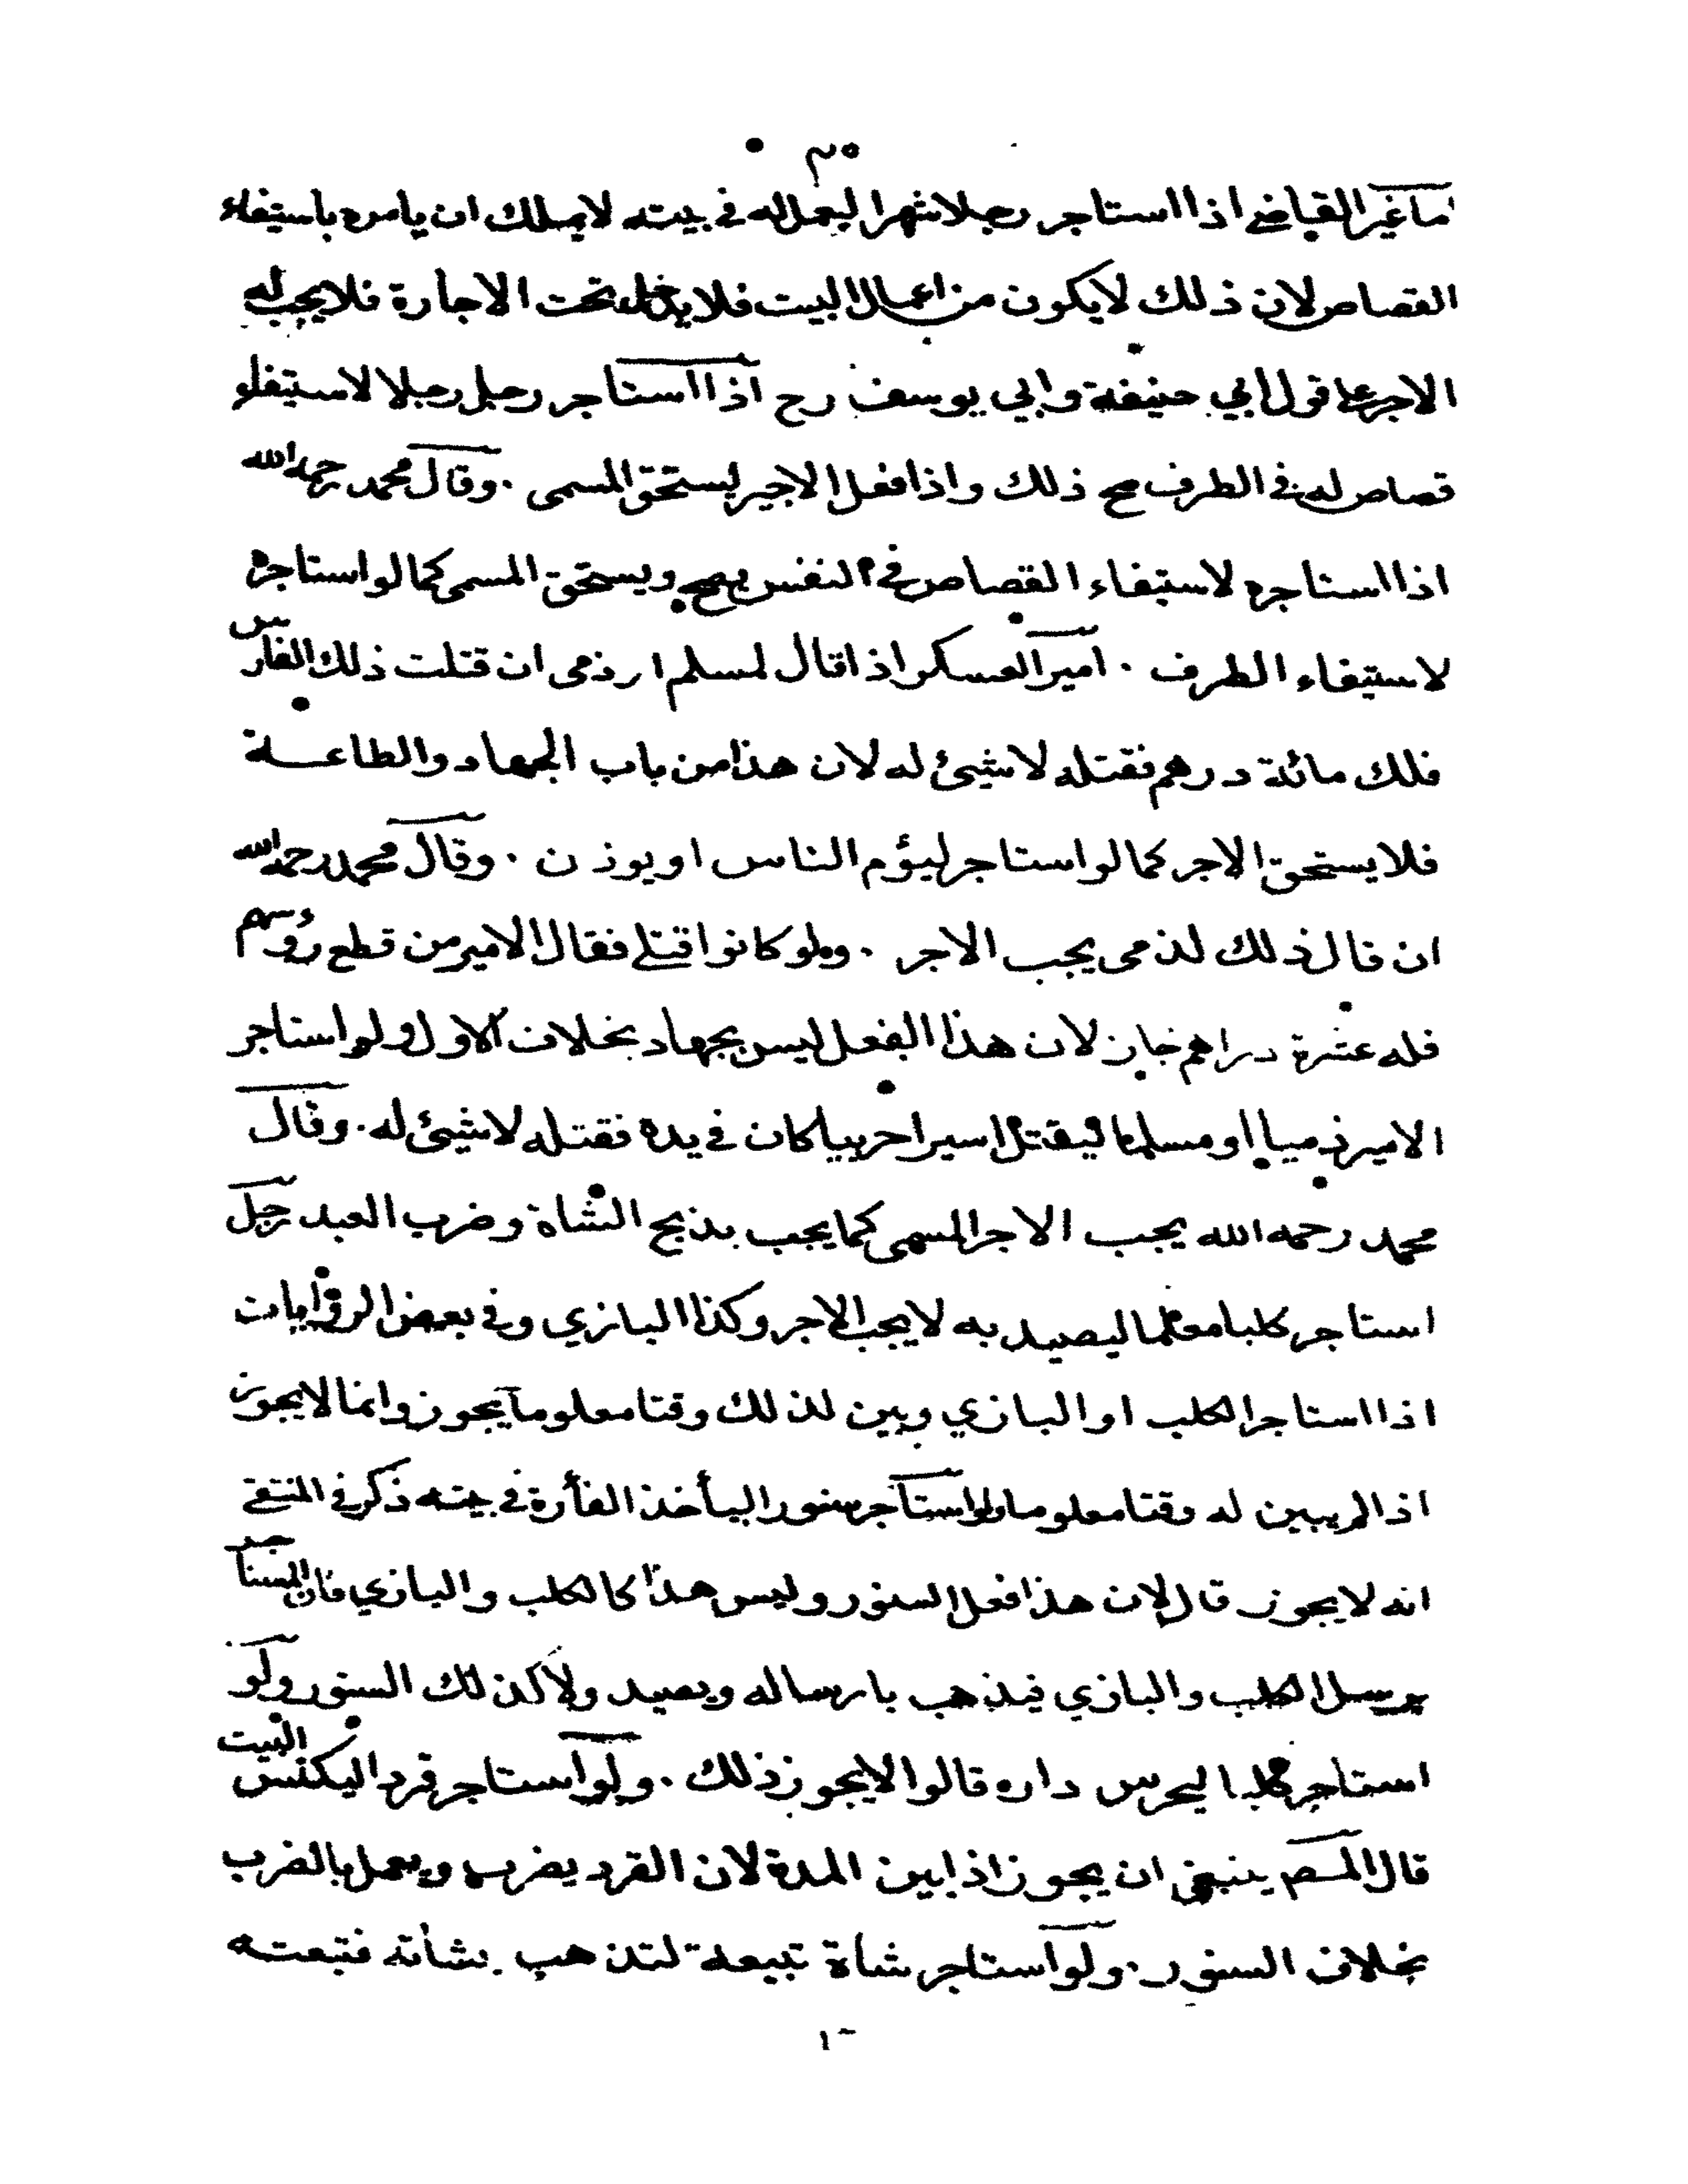 ٥٣
اما غير القاضي اذا استاجر رجلا شهرا ليعمل له في بيته لا يملك ان يامره باستيفاء
القصاص لان ذلك لا يكون من اعمال البيت فلا يدخل تحت الاجارة فلا يجب له
الاجر على قول ابي حنيفة وابي يوسف رح اذا استاجر رجل رجلا لاستيفاء
قصاص له في الطرف صح ذلك واذا فعل الاجير يستحق المسمى . وقال محمد رحمه الله
اذا استاجره لاستيفاء القصاص في النفس يصح ويستحق المسمى كما لو استاجره
لاستيفاء الطرف . امير العسكر اذا قال لمسلم او ذمى ان قتلت ذلك الفارس
فلك مائة درهم فقتله لا شيئ له لان هذا من باب الجهاد والطاعة
فلا يستحق الاجر كما لو استاجر ليؤم الناس او يوذن . وقال محمد رحمه الله
ان قال ذلك لذمى يجب الاجر . ولو كانوا قتلى فقال الامير من قطع رؤسهم
فله عشرة دراهم جاز لان هذا الفعل ليس بجهاد بخلاف الاول ولو استاجر
الامير ذميا او مسلما ليقتل اسيرا حربيا كان في يده فقتله لا شيئ له . وقال
محمد رحمه الله يجب الاجر المسمى كما يجب بذبح الشاة وضرب العبد رجل
استاجر كلبا معلما ليصيد به لا يجب الاجر وكذا البازي وفي بعض الروايات
اذا استاجر الكلب او البازي وبين لذلك وقتا معلوما يجوز وانما لا يجوز
اذا لم يبين له وقتا معلوما ولو استاجر سنورا ليأخذ الفأرة في بيته ذكر في المنتقى
انه لا يجوز قال لان هذا فعل السنور وليس هذا كالكلب والبازي فان المستاجر
يرسل الكلب والبازي فيذهب بارساله ويصيد ولا كذلك السنور ولو
استاجر كلبا ليحرس داره قالوا لا يجوز ذلك . ولو استاجر قردا ليكنس البيت
قال المصـ ينبغي ان يجوز اذا بين المدة لان القرد يضرب ويعمل بالضرب
بخلاف السنور . ولو استاجر شاة تبيعة لتذهب بشاته فتبعته